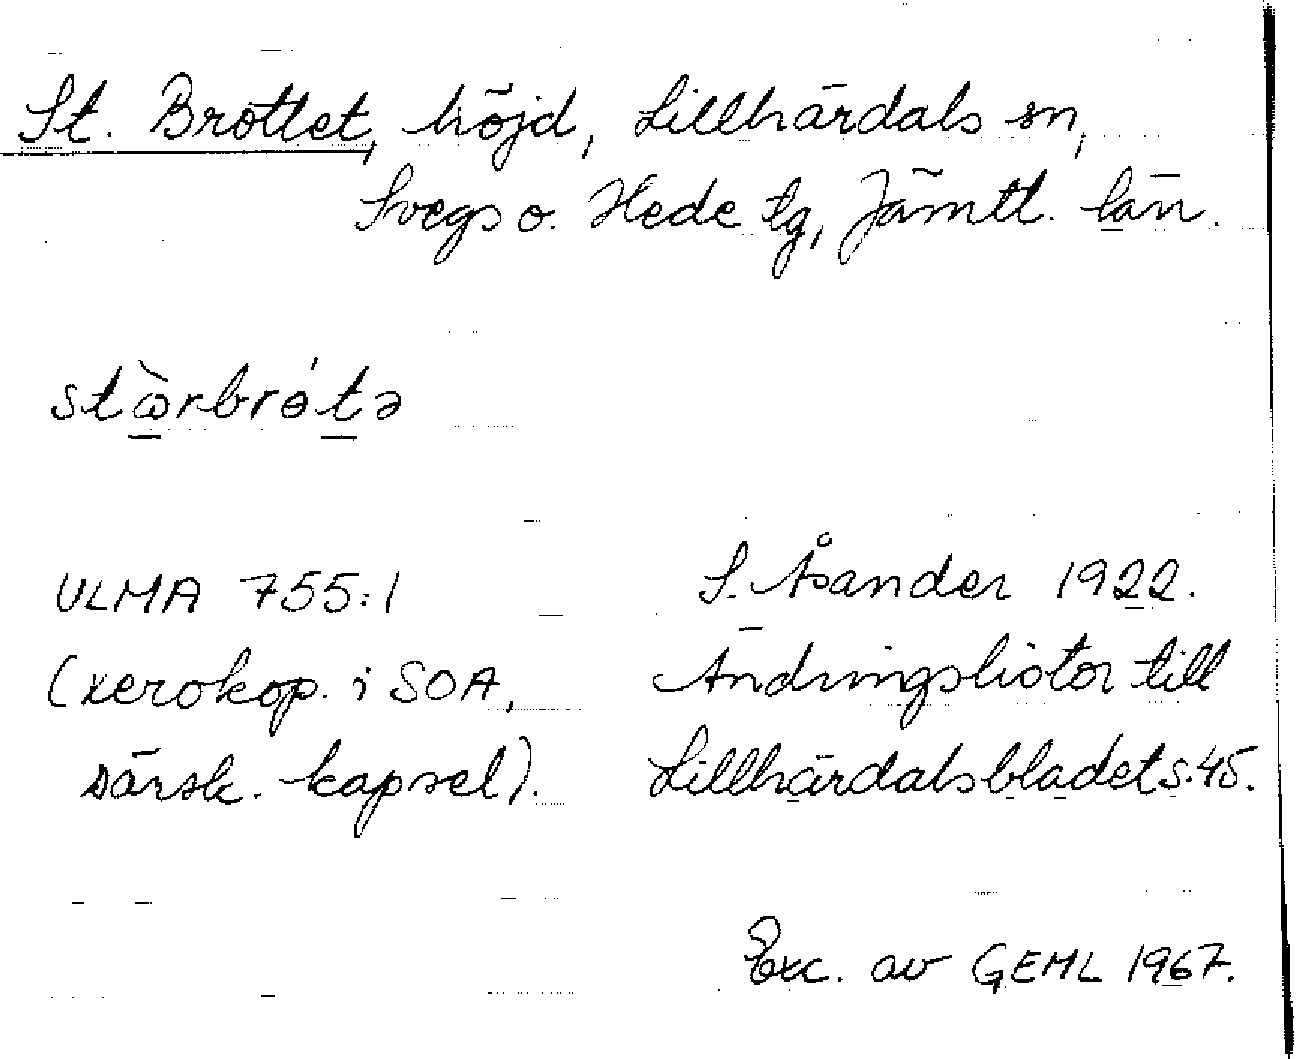 St. Brottet, höjd, Lillhärdals sn,
Svegs o. Hede tg, Jämtl. län.
stὼrbrɵ́tə
ULMA 755:1
(xerokop. i SOA,
särsk. kapsel).
S. Åsander 1922.
Ändringslistor till
Lillhärdalsbladet s. 45.
Exc. av GEML 1967.